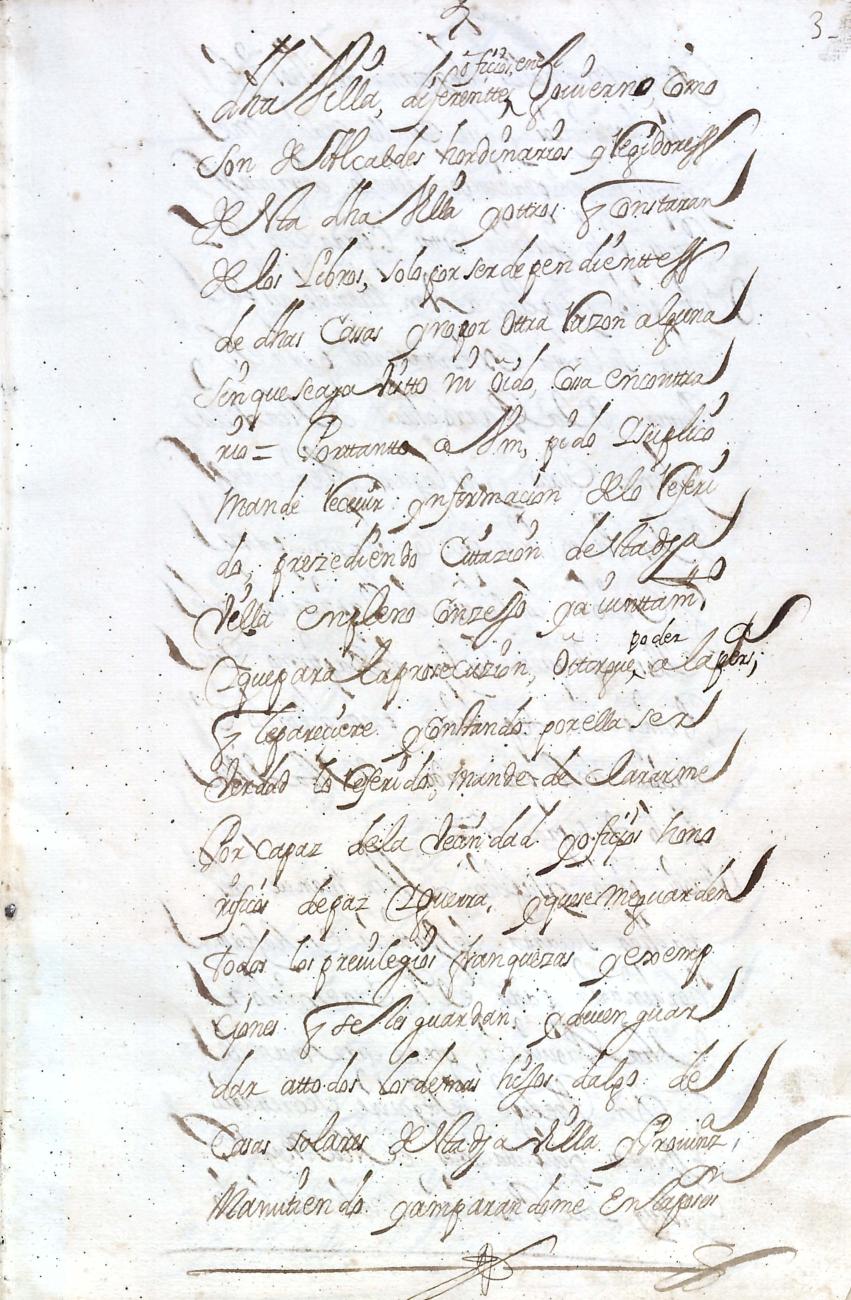 3-
oficios, en el
dha Villa, diferenttes, Govierno, Como
Son de Alcaldes hordinarios y Regidoress
de Sta dha Villa y ottros q Constaran
de los Libros, solo por ser dependienttess
de dhas Casas y no por Ottra Razon alguna
sin que se aya Vistto ni Oido, Cosa en contra
rio = Porttantto a Vm, pido Y suplico
Mande Reçevir ynformaçion de lo Referi
do, prezediendo Cittazion de Sta dja
Villa en pleno Conzesso y aiunttamto
poder
Y que para la prosecuzion, Ottorgue, a la persa,
q le pareciere y Constando por ella ser
Verdad lo Referido, mande de Clararme
Por capaz de la Veçindad y ofiçios hono
rificos de paz Y guerra, y que se me guarden
todos los previlegios franquezas y exemp
çiones q se les guardan, y deven guar
dar atto dos los demas hijos dalgo de
Casas solares de Sta dja Villa y Provinza,
Manutiendo y amparandome En la poson